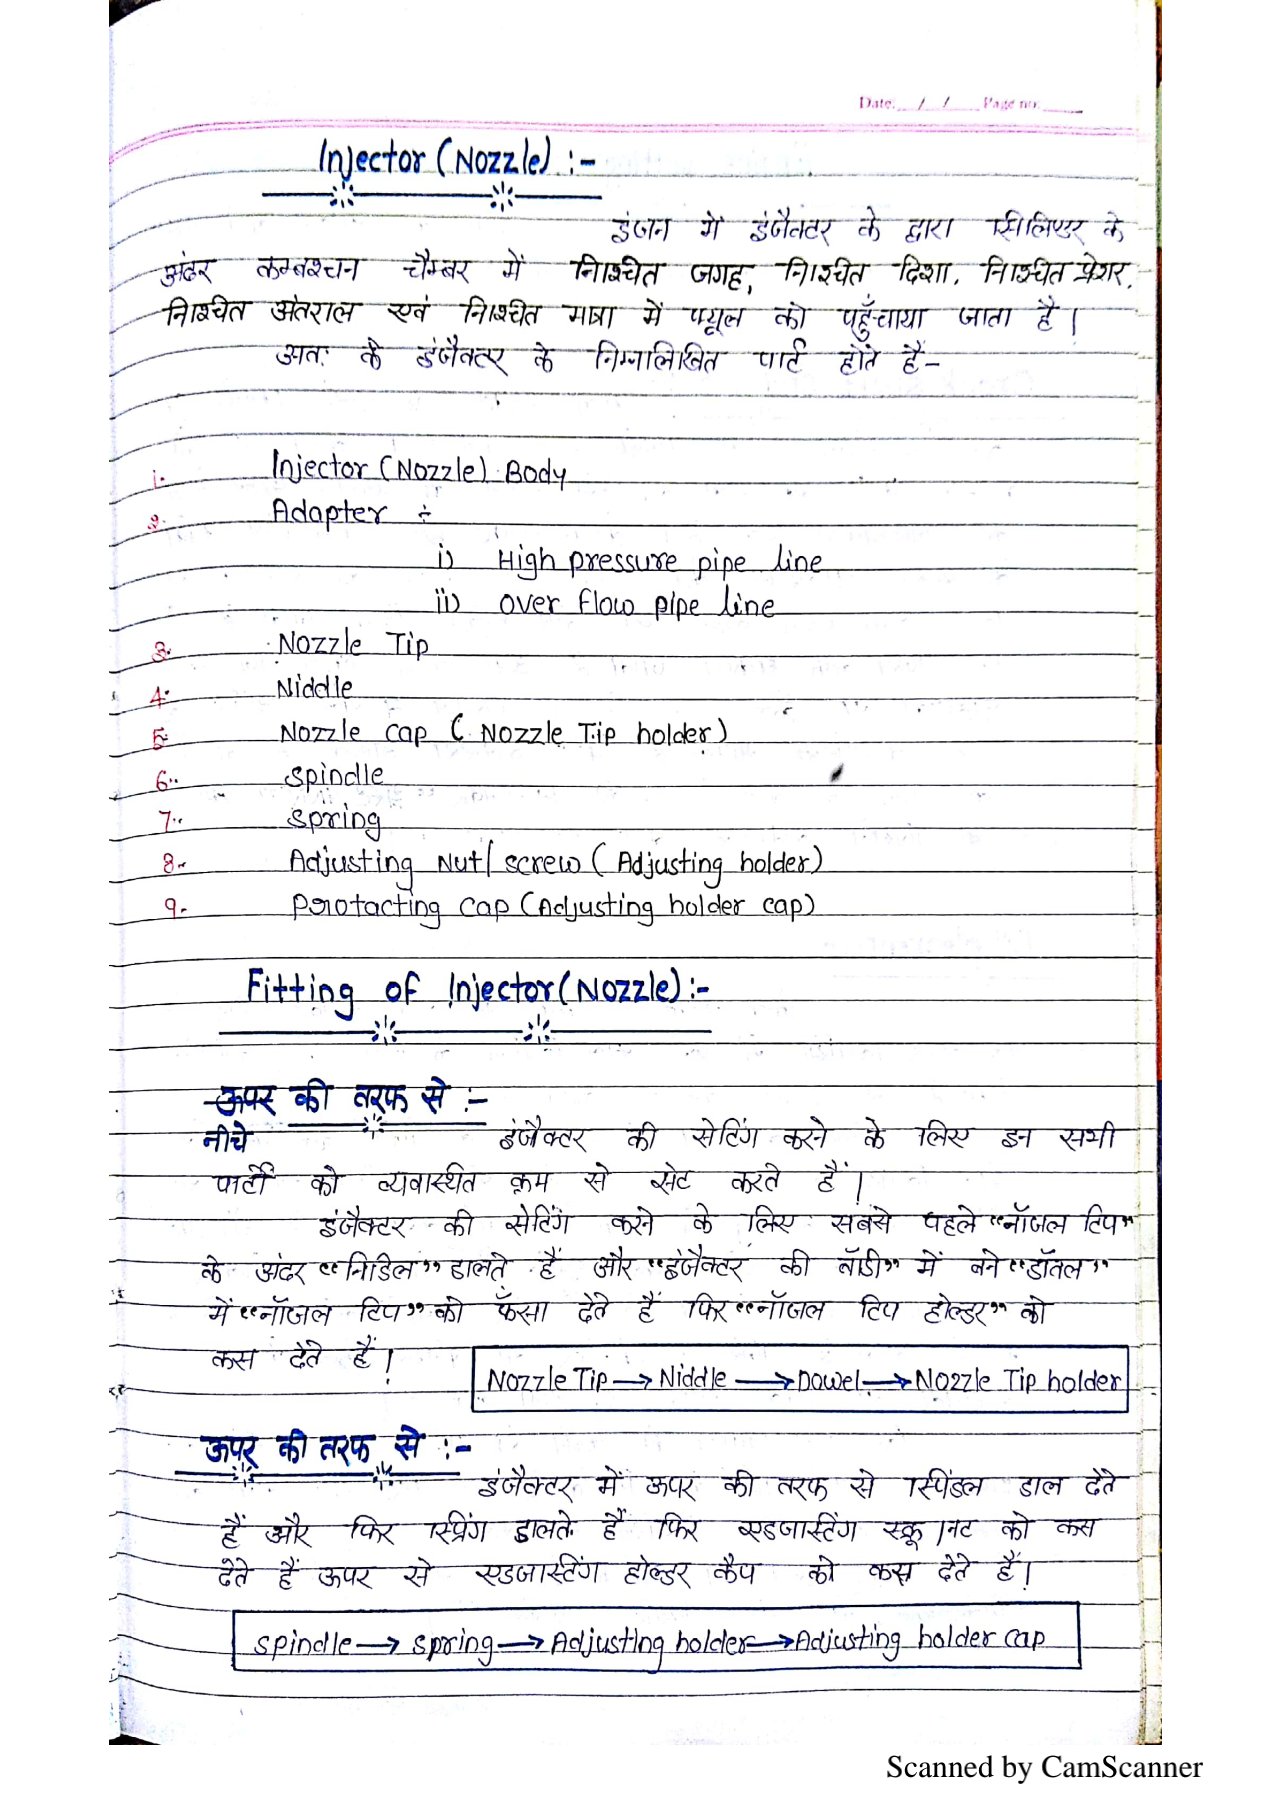 Date. / / Page no.
Injector (Nozzle) :-
इंजन में इंजैक्टर के द्वारा सिलिण्डर के
अंदर कम्बश्चन चैम्बर में निश्चित जगह, निश्चित दिशा, निश्चित प्रेशर,
निश्चित अंतराल एवं निश्चित मात्रा में फ्यूल को पहुँचाया जाता है।
अतः के इंजैक्टर के निम्नलिखित पार्ट होते हैं-
1. Injector (Nozzle) Body
2. Adapter ÷
i) High pressure pipe line
ii) over flow pipe line
3. Nozzle Tip
4. Niddle
5. Nozzle cap ( Nozzle Tip holder)
6. spindle
7. spring
8. Adjusting Nut/ screw ( Adjusting holder)
9. Protacting cap (Adjusting holder cap)
Fitting of Injector (Nozzle) :-
ऊपर की तरफ से :-
नीचे इंजैक्टर की सेटिंग करने के लिए इन सभी
पार्टो को व्यवास्थित क्रम से सेट करते हैं।
इंजैक्टर की सेटिंग करने के लिए सबसे पहले "नॉजल टिप"
के अंदर "निडिल" डालते हैं और "इंजैक्टर की बॉडी" में बने "डॉवल"
में "नॉजल टिप" को फँसा देते हैं फिर "नॉजल टिप होल्डर" को
कस देते हैं।
Nozzle Tip → Niddle → Dowel → Nozzle Tip holder
ऊपर की तरफ से :-
इंजैक्टर में ऊपर की तरफ से स्पिंडल डाल देते
हैं और फिर स्प्रिंग डालते हैं फिर एडजास्टिंग स्क्रू/नट को कस
देते हैं ऊपर से एडजास्टिंग होल्डर कैप को कस देते हैं।
spindle → spring → Adjusting holder → Adjusting holder cap
Scanned by CamScanner